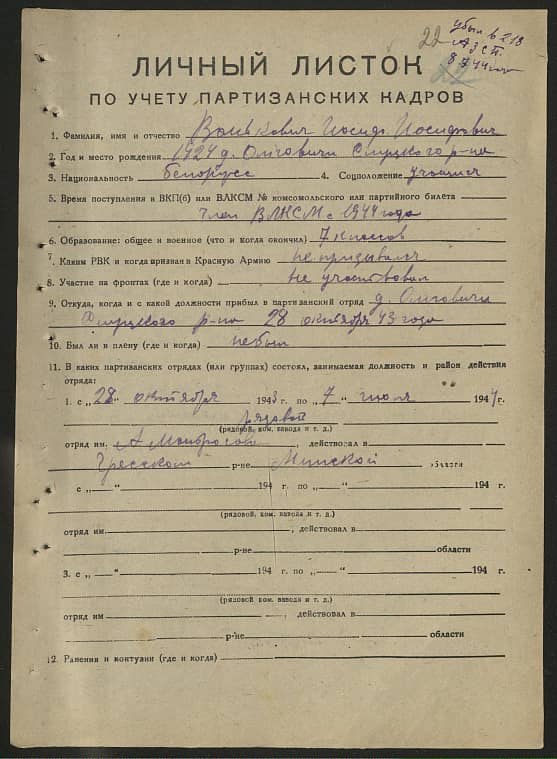 22
убыл в 218
АЗСП
8 7 44
22
ЛИЧНЫЙ ЛИСТОК
ПО УЧЕТУ ПАРТИЗАНСКИХ КАДРОВ
1. Фамилия, имя и отчество Иосиф Иосифович
2. Год и место рождения 1924 д. Олиговичи Слуцкого р-на
3. Национальность белорусс 4. Соцположение учащийся
5. Время поступления в ВКП(б) или ВЛКСМ № комсомольского или партийного билета
Член ВЛКСМ с 1944 года
6. Образование: общее и военное (что и когда окончил) 7 классов
7. Каким РВК и когда призван в Красную Армию не призывался
8. Участие на фронтах (где и когда) не участвовал
9. Откуда, когда и с какой должности прибыл в партизанский отряд д. Олиговичи
Слуцкого р-на 28 октября 43 года
10. Был ли в плену (где и когда) не был
11. В каких партизанских отрядах (или группах) состоял, занимаемая должность и район действия
отряда:
1. с „28“ октября 1943 г. по „7“ июля 1944 г.
рядовой
(рядовой, ком. взвода и т. д.)
отряд им. , действовал в
Гресском р-не Минской области
с „ “ 194 г. по „ “ 194 г.
(рядовой, ком. взвода и т. д.)
отряд им. , действовал в
р-не области
3. с „ “ 194 г. по „ “ 194 г.
(рядовой, ком. взвода и т. д.)
отряд им , действовал в
р-не области
12. Ранения и контузии (где и когда)